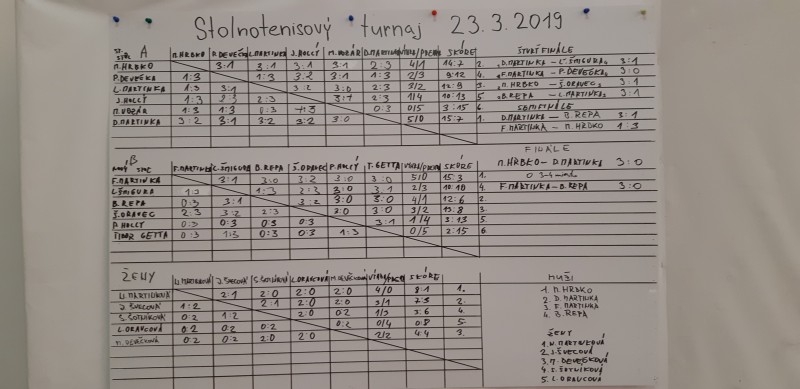 Stolnotenisový turnaj 23.3.2019
A M.HRBKO P.DEVEČKA L.MARTINKA J.HOLLÝ M.VOZÁR D.MARTINKA SKÓRE
M.HRBKO 3:1 3:1 3:1 3:1 2:3 4/1 14:7 2.
P.DEVEČKA 1:3 1:3 3:2 3:1 1:3 2/3 9:12 4.
L.MARTINKA 1:3 3:1 3:2 3:0 2:3 3/2 12:9 3.
J.HOLLÝ 1:3 2:3 2:3 3:1 2:3 1/4 10:13 5.
M.VOZÁR 1:3 1:3 0:3 0:3 0/5 3:15 6.
D.MARTINKA 3:2 3:1 3:2 3:2 3:0 5/0 15:7 1.
ŠTVRŤFINÁLE
D.MARTINKA - Ľ.ŠMIGURA 3:1
F.MARTINKA - P.DEVEČKA 3:0
M.HRBKO - Š.ORAVEC 3:1
B.REPA - L.MARTINKA 3:1
SEMIFINÁLE
D.MARTINKA - B.REPA 3:1
F.MARTINKA - M.HRBKO 1:3
FINÁLE
M.HRBKO - D.MARTINKA 3:0
O 3-4 miesto
F.MARTINKA - B.REPA 3:0
B F.MARTINKA Ľ.ŠMIGURA B.REPA Š.ORAVEC P.HOLLÝ T.GETTA SKÓRE
F.MARTINKA 3:1 3:0 3:2 3:0 3:0 5/0 15:3 1.
Ľ.ŠMIGURA 1:3 1:3 2:3 3:0 3:1 2/3 10:10 4.
B.REPA 0:3 3:1 3:2 3:0 3:0 4/1 12:6 2.
Š.ORAVEC 2:3 3:2 2:3 3:0 3:0 3/2 13:8 3.
P.HOLLÝ 0:3 0:3 0:3 0:3 3:1 1/4 3:13 5.
TIBOR GETTA 0:3 1:3 0:3 0:3 1:3 0/5 2:15 6
ŽENY M.MARTINKOVÁ J.ŠVECOVÁ S.ŠOTNÍKOVÁ L.ORAVCOVÁ M.DEVEČKOVÁ SKÓRE
M.MARTINKOVÁ 2:1 2:0 2:0 2:0 4/0 8:1 1.
J.ŠVECOVÁ 1:2 2:1 2:0 2:0 3/1 7:3 2.
S.ŠOTNÍKOVÁ 0:2 1:2 2:0 0:2 1/3 3:6 4.
L.ORAVCOVÁ 0:2 0:2 0:2 0:2 0/4 0:8 5.
M.DEVEČKOVÁ 0:2 0:2 2:0 2:0 2/2 4:4 3.
MUŽI
1. M.HRBKO
2. D.MARTINKA
3. F.MARTINKA
4. B.REPA
ŽENY
1. M.MARTINKOVÁ
2. J.ŠVECOVÁ
3. M.DEVEČKOVÁ
4. S.ŠOTNÍKOVÁ
5. L.ORAVCOVÁ